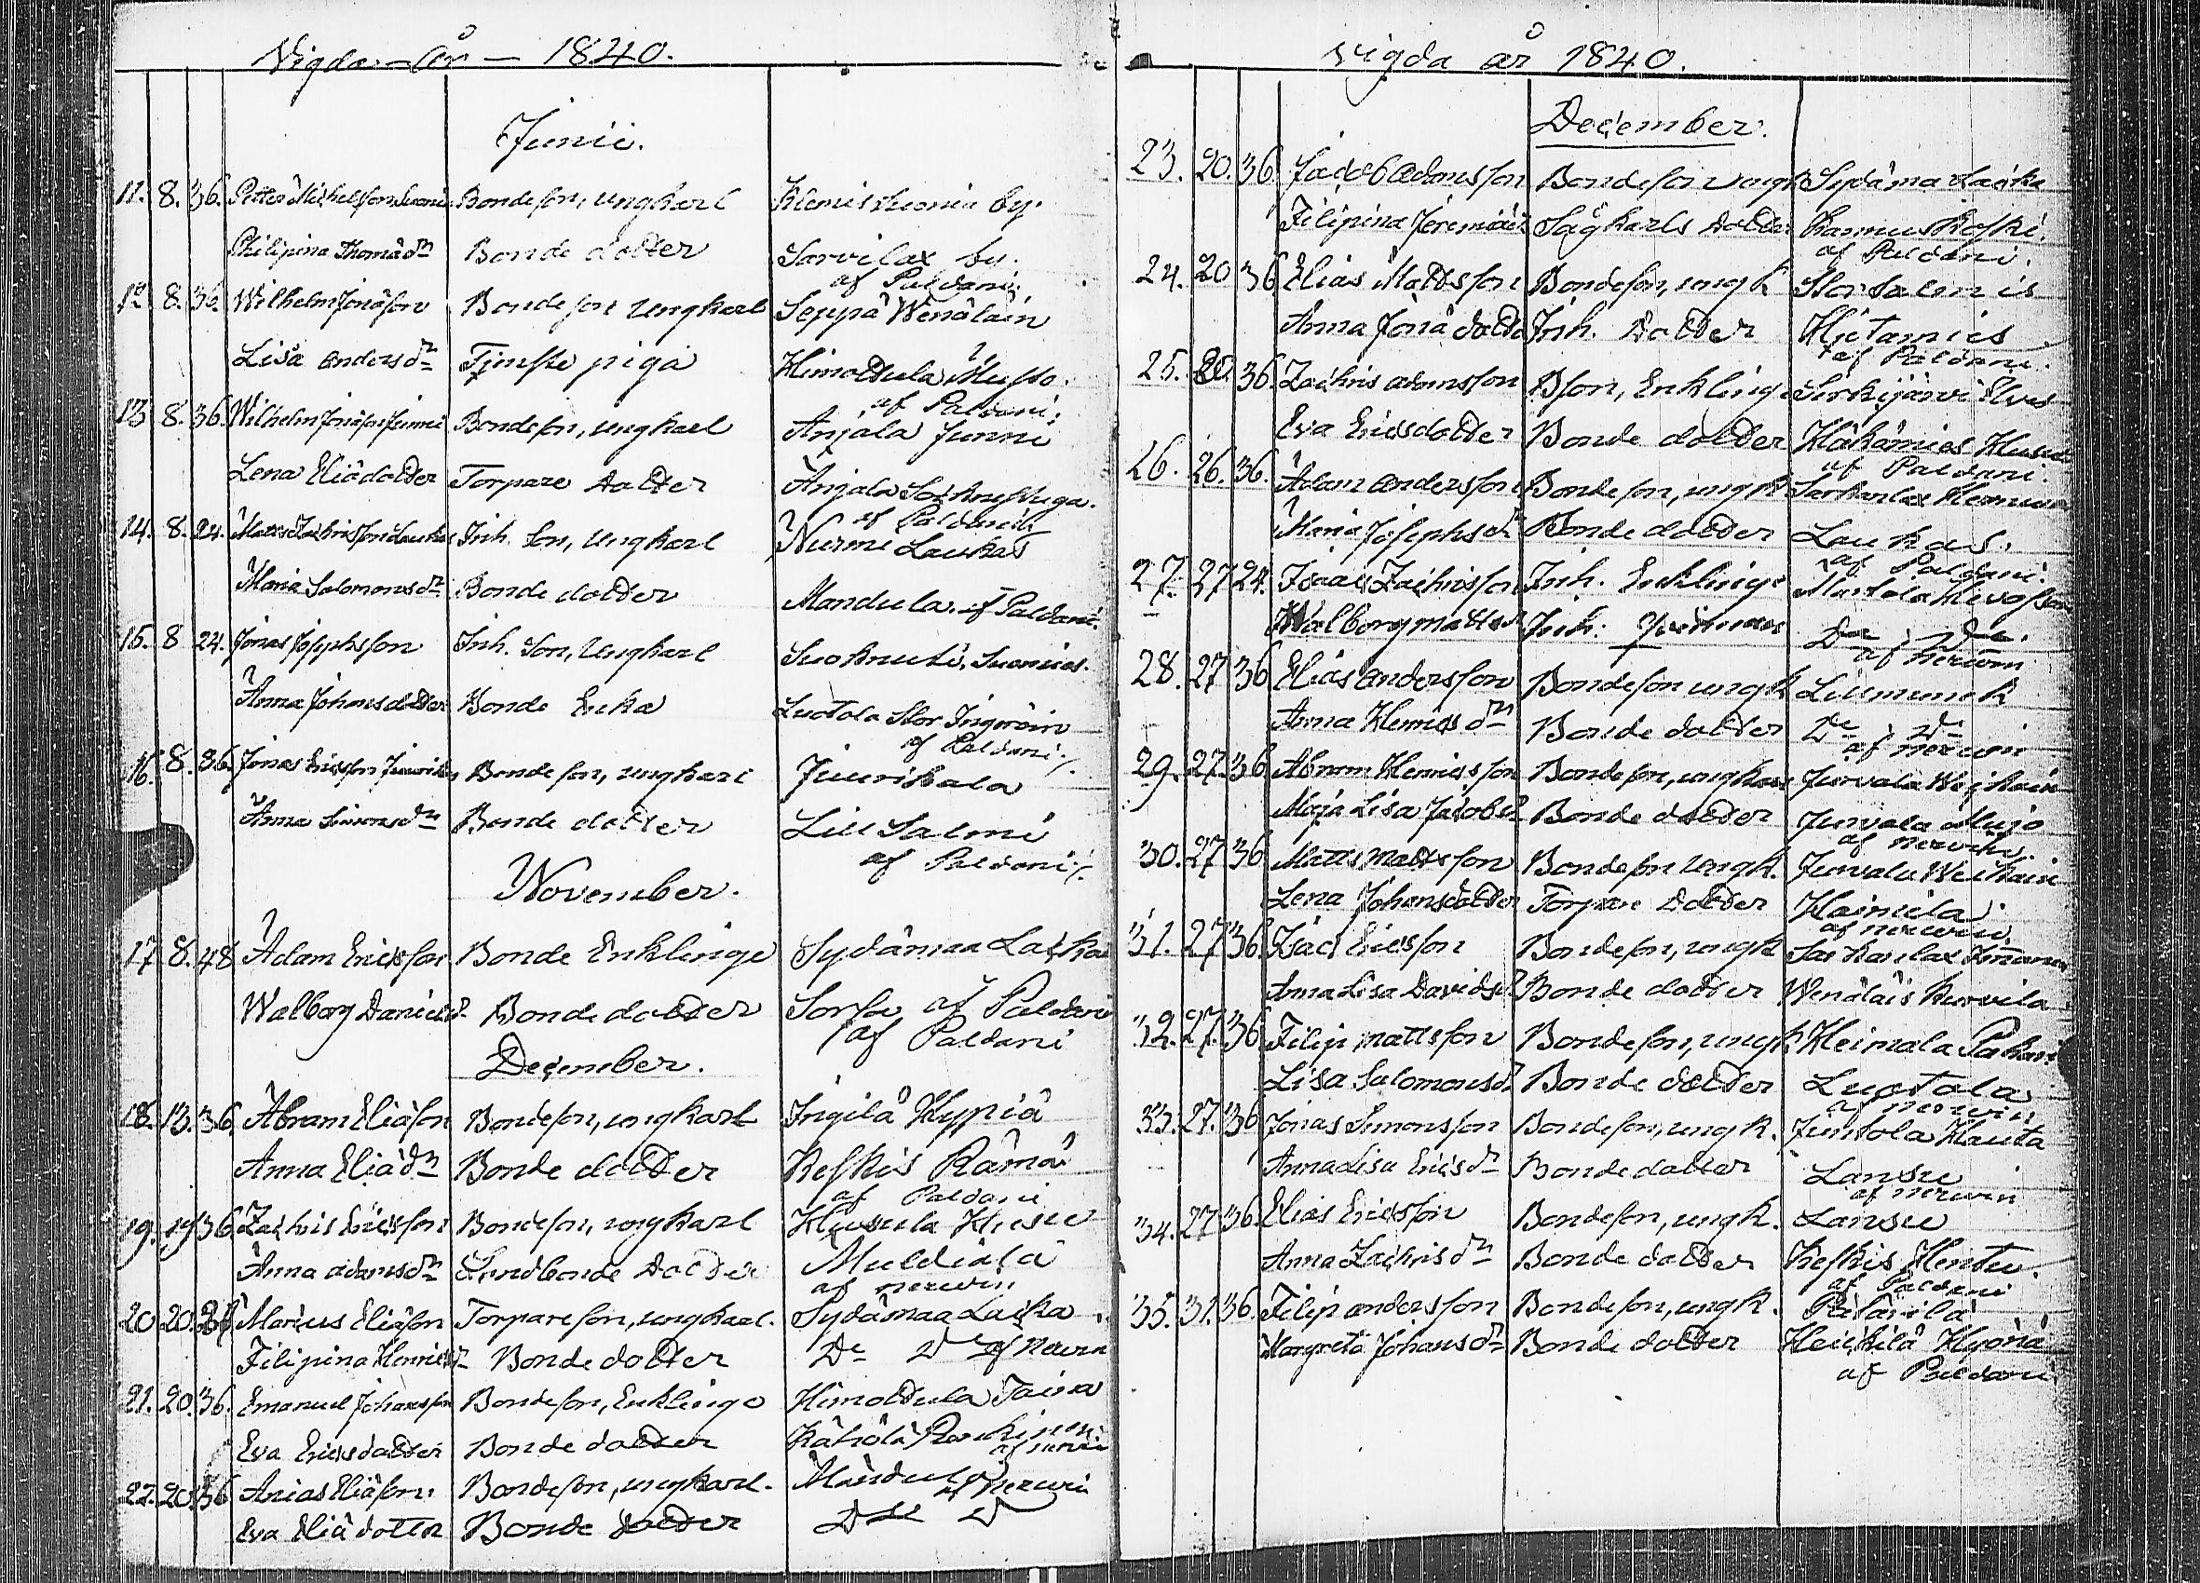 Vigda år 1840.
Junii.
11. 8. 36. Petter Michelsson Bondeson, ungkarl by.
Philipina Thomædr Bonde dotter Sarvilax by. af Paldani.
12 8. 36. Wilhelm Jonäson Bondeson ungkarl Seppä Wenäläin
Lisa Andersdr Tjenste piga Himottula Musto. af Paldani.
13 8. 36. Wilhelm Jonäson Junni Bondeson, ungkarl Anjala Junni
Lena Eliædotter Torpare dotter Anjala af Paldani
14. 8. 24. Matts Zachrisson Laukas Inh. Son, ungkarl Nurmi Laukas
Maria Salomonsdr Bonde dotter Mandula af Paldani.
15. 8 24. Jonas Josephsson Inh. Son, ungkarl Suoknuti, Suomies.
Anna Johansdotter Bonde Enka Luotola Stor Ingeröin af Paldani
16. 8. 36. Jonas Ericsson Bondeson, ungkarl Juurikala
Anna Simonsdr Bonde dotter Lill Salmi af Paldani
November.
17 8. 48 Adam Ericsson Bonde Enklinge Sydänmaa Laska
Walborg Danielsdr Bonde dotter Sorsa af Paldani
af Paldani
December.
18. 13. 36. Abram Eliäson Bondeson, ungkarl Ingilä Hyppiä
Anna Eliädr Bonde dotter Keskis Rämä af Paldani
19. 19 36 Zachris Ericsson Bondeson, ungkarl Husula Husu
Anna Adamsdr Landbonde dotter Muldiala af nerwin
20 20. Marcus Eliäson Torpareson, ungkarl. Sydänmaa Laska
Filipina Henricsdr Bonde dotter Do Do af Nerwin
21. 20. 36. Emanuel Johansson Bondeson, Enklinge Himottula Taina
Eva Ericsdotter Bonde dotter Kähölä af nerwin
22. 20. 36 Anias Eliäson Bondeson, ungkarl. Mandula af Nerwin
Eva Eliädotter Bonde dotter Do Do
Vigda år 1840.
December.
23. 20. 36 Jacob Adamsson Bondeson ungk Sydämaa Laska
Filipina Jeremiædr Sågkarls dotter Kannuskoski. af Paldani.
24. 20 36 Elias Mattsson Bondeson, ungk Stor Salmis
Anna Jonädotter Inh. dotter Hietamies af Paldani.
25. 20. 36. Zachris Adamsson Bson, Enkling Sirkijärvi
Eva Ericsdotter Bonde dotter Häkämies Husu af Paldani.
26. 26. 36. Adam Andersson Bondeson, ungk
Maria Josephsdr Bonde dotter Laukas. af Paldani.
27. 27 24. Isaac Zachrisson Inh. Enklinge Martola
Walborg Mattsdr Inh. Do Do. af nerwin
28. 27 36 Elias Andersson Bondeson ungk Liimmerk
Anna Henricsdr Bonde dotter Do Do af nerwin
29. 27. 36 Abram Henricsson Bondeson, ungkarl Jurvala
Maja Lisa Jacobsdr Bonde dotter Jurvala af nerwin.
30. 27 36 Matts Mattsson Bondeson ungk. Jurvala
Lena Johansdotter Torpare dotter Hainila. af nerwin
31. 27 36 Isac Ericsson Bondeson, ungk
Anna Lisa Davidsdr Bonde dotter Wenäläis Kurvila
32. 27. 36 Filip Mattsson Bondeson, ungk. Heimala
Lisa Salomonsdr Bonde dotter Luotola af nerwin
33. 27. 36 Jonas Simonsson Bondeson, ungk. Juntola Hauta
Anna Lisa Ericsdr Bonde dotter Lansu af nerwin
34. 27 36. Elias Ericsson Bondeson, ungk. Lansu
Anna Zachrisdr Bonde dotter Keskis Henttu. af Paldani
35. 31. 36. Filip Andersson Bondeson, ungk. Pitäjilä
Margreta Johansdr Bonde dotter Heickilä Hyönä af Paldani